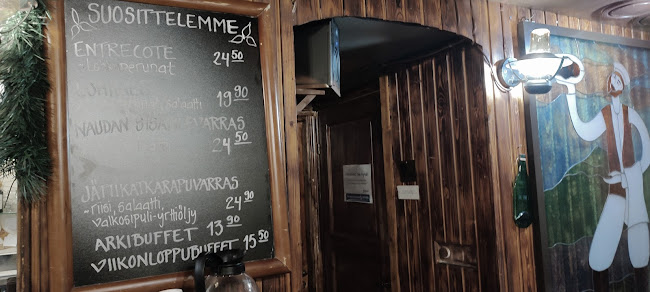 SUOSITTELEMME
ENTRECÔTE 24 50
- Lohkoperunat
19 90
salaatti
NAUDAN VARRAS
24 50
JÄTTIKATKARAPUVARRAS
- riisi, salaatti,
valkosipuli-yrttiöljy 24 90
ARKIBUFFET 13 90
VIIKONLOPPUBUFFET 15 50